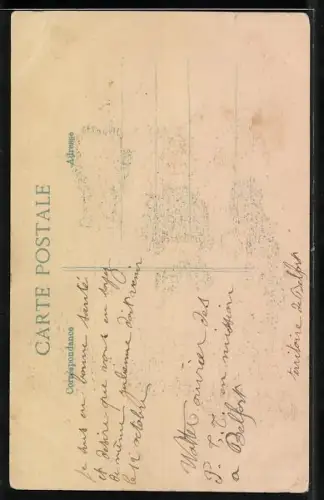 CARTE POSTALE
Correspondance
Adresse
je suis en bonne santé
et desire que vous en soyez
de même
le 12 octobre
Walter ouvrier des
P. T. T. en mission
a Belfort
territoire de Belfort